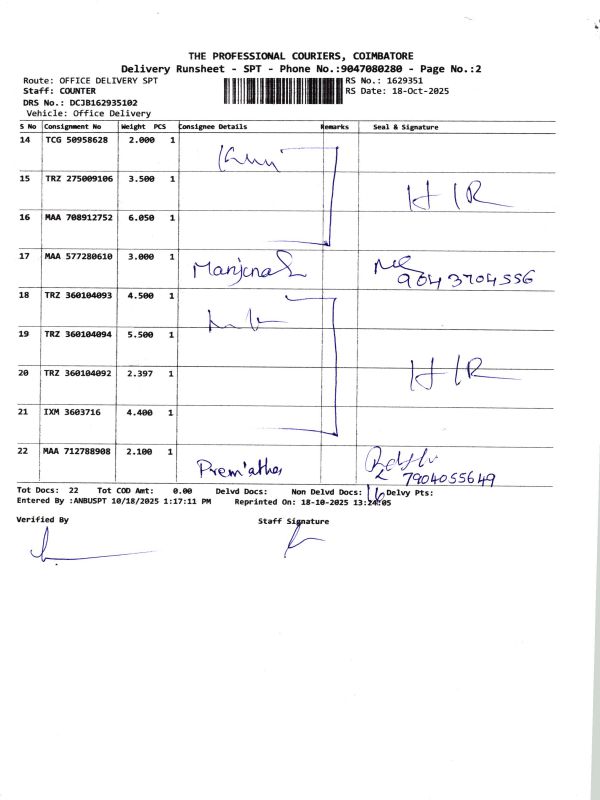 THE PROFESSIONAL COURIERS, COIMBATORE
Delivery Runsheet - SPT - Phone No.:9047080280 - Page No.:2
Route: OFFICE DELIVERY SPT RS No.: 1629351
Staff: COUNTER RS Date: 18-Oct-2025
DRS No.: DCJB162935102
Vehicle: Office Delivery
S No Consignment No Weight PCS Consignee Details Remarks Seal & Signature
14 TCG 50958628 2.000 1
15 TRZ 275009106 3.500 1 HIR
16 MAA 708912752 6.050 1
17 MAA 577280610 3.000 1 9043704556
18 TRZ 360104093 4.500 1
19 TRZ 360104094 5.500 1
20 TRZ 360104092 2.397 1 HIR
21 IXM 3603716 4.400 1
22 MAA 712788908 2.100 1 7904055649
Tot Docs: 22 Tot COD Amt: 0.00 Delvd Docs: Non Delvd Docs: 16 Delvy Pts:
Entered By :ANBUSPT 10/18/2025 1:17:11 PM Reprinted On: 18-10-2025 13:24:05
Verified By Staff Signature